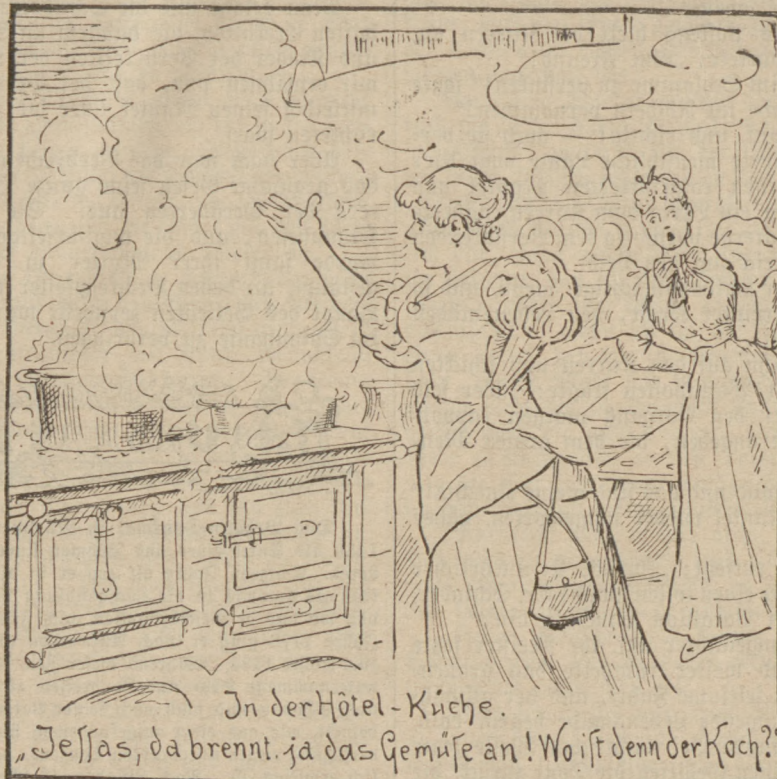 In der Hôtel-Küche.
„Jessas, da brennt ja das Gemüse an! Wo ist denn der Koch?“